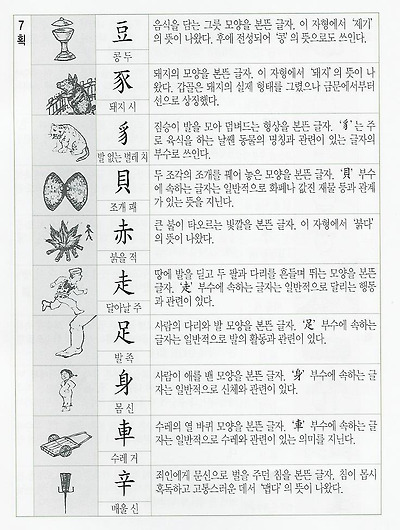 7
획
豆
콩 두
음식을 담는 그릇 모양을 본뜬 글자. 이 자형에서 '제기'
의 뜻이 나왔다. 후에 전성되어 '콩'의 뜻으로도 쓰인다.
豕
돼지 시
돼지의 모양을 본뜬 글자. 이 자형에서 '돼지'의 뜻이 나
왔다. 갑골은 돼지의 실제 형태를 그렸으나 금문에서부터
선으로 상징했다.
豸
발 없는 벌레 치
짐승이 발을 모아 덤벼드는 형상을 본뜬 글자. '豸'는 주
로 육식을 하는 날랜 동물의 명칭과 관련이 있는 글자의
부수로 쓰인다.
貝
조개 패
두 조각의 조개를 꿰어 놓은 모양을 본뜬 글자. '貝' 부수
에 속하는 글자는 일반적으로 화폐나 값진 재물 등과 관계
가 있는 뜻을 지닌다.
赤
붉을 적
큰 불이 타오르는 빛깔을 본뜬 글자. 이 자형에서 '붉다'
의 뜻이 나왔다.
走
달아날 주
땅에 발을 딛고 두 팔과 다리를 흔들며 뛰는 모양을 본뜬
글자. '走' 부수에 속하는 글자는 일반적으로 달리는 행동
과 관련이 있다.
足
발 족
사람의 다리와 발 모양을 본뜬 글자. '足' 부수에 속하는
글자는 일반적으로 발의 활동과 관련이 있다.
身
몸 신
사람이 애를 밴 모양을 본뜬 글자. '身' 부수에 속하는 글
자는 일반적으로 신체와 관련이 있다.
車
수레 거
수레의 옆 바퀴 모양을 본뜬 글자. '車' 부수에 속하는 글
자는 일반적으로 수레와 관련이 있는 의미를 지닌다.
辛
매울 신
죄인에게 문신으로 벌을 주던 침을 본뜬 글자. 침이 몹시
혹독하고 고통스러운 데서 '맵다'의 뜻이 나왔다.